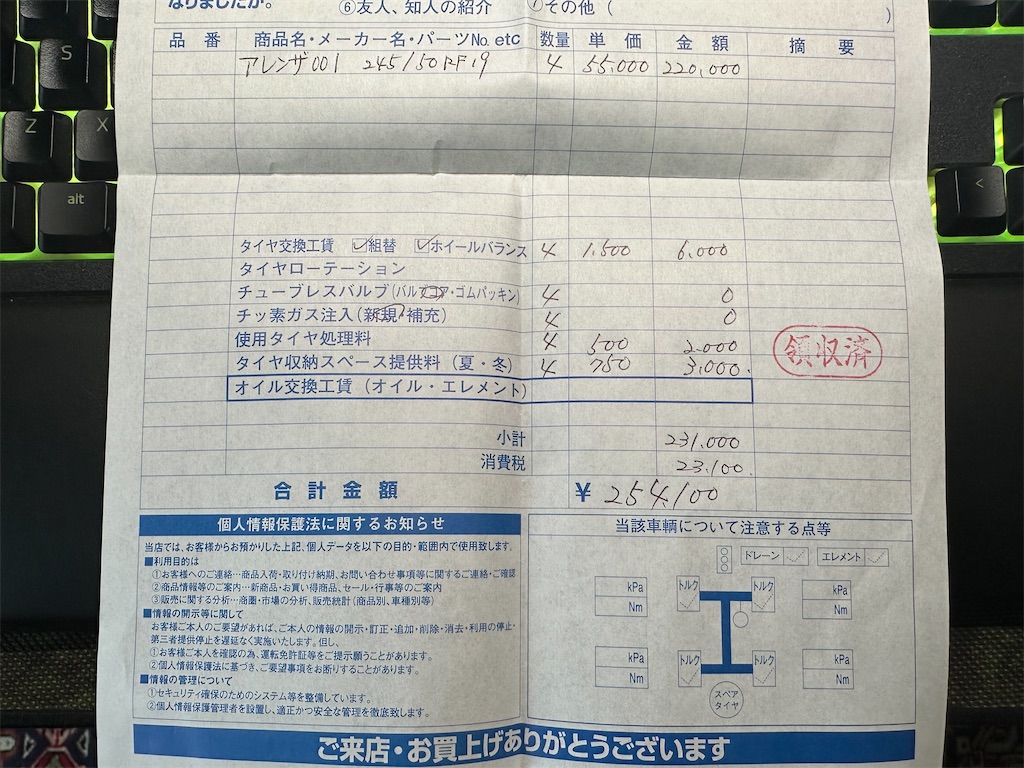 なりましたか。 ⑥友人、知人の紹介 ⑦その他( )
品 番 商品名・メーカー名・パーツNo. etc 数量 単 価 金 額 摘 要
アレンザ001 245/50RF19 4 55,000 220,000
タイヤ交換工賃 ☑組替 ☑ホイールバランス 4 1,500 6,000
タイヤローテーション
チューブレスバルブ(バルブコア・ゴムパッキン) 4 0
チッ素ガス注入(新規・補充) 4 0
使用タイヤ処理料 4 500 2,000
タイヤ収納スペース提供料(夏・冬) 4 750 3,000.
領収済
オイル交換工賃(オイル・エレメント)
小計 231,000
消費税 23,100.
合計金額 ¥ 254,100
個人情報保護法に関するお知らせ
当店では、お客様からお預かりした上記、個人データを以下の目的・範囲内で使用致します。
■利用目的は
①お客様へのご連絡…商品入荷・取り付け納期、お問い合わせ事項等に関するご連絡・ご確認
②商品情報等のご案内…新商品・お買い得商品、セール・行事等のご案内
③販売に関する分析…商圏・市場の分析、販売統計(商品別、車種別等)
■情報の開示等に関して
お客様ご本人のご要望があれば、ご本人の情報の開示・訂正・追加・削除・消去・利用の停止・
第三者提供停止を遅延なく実施いたします。但し、
①お客様ご本人を確認の為、運転免許証等をご提示願うことがあります。
②個人情報保護法に基づき、ご要望事項をお断りすることがあります。
■情報の管理について
①セキュリティ確保のためのシステム等を整備しています。
②個人情報保護管理者を設置し、適正かつ安全な管理を徹底致します。
当該車輌について注意する点等
ドレーン エレメント
kPa トルク トルク kPa
Nm Nm
kPa トルク トルク kPa
Nm Nm
スペア
タイヤ
ご来店・お買上げありがとうございます
S
Z X
alt
<